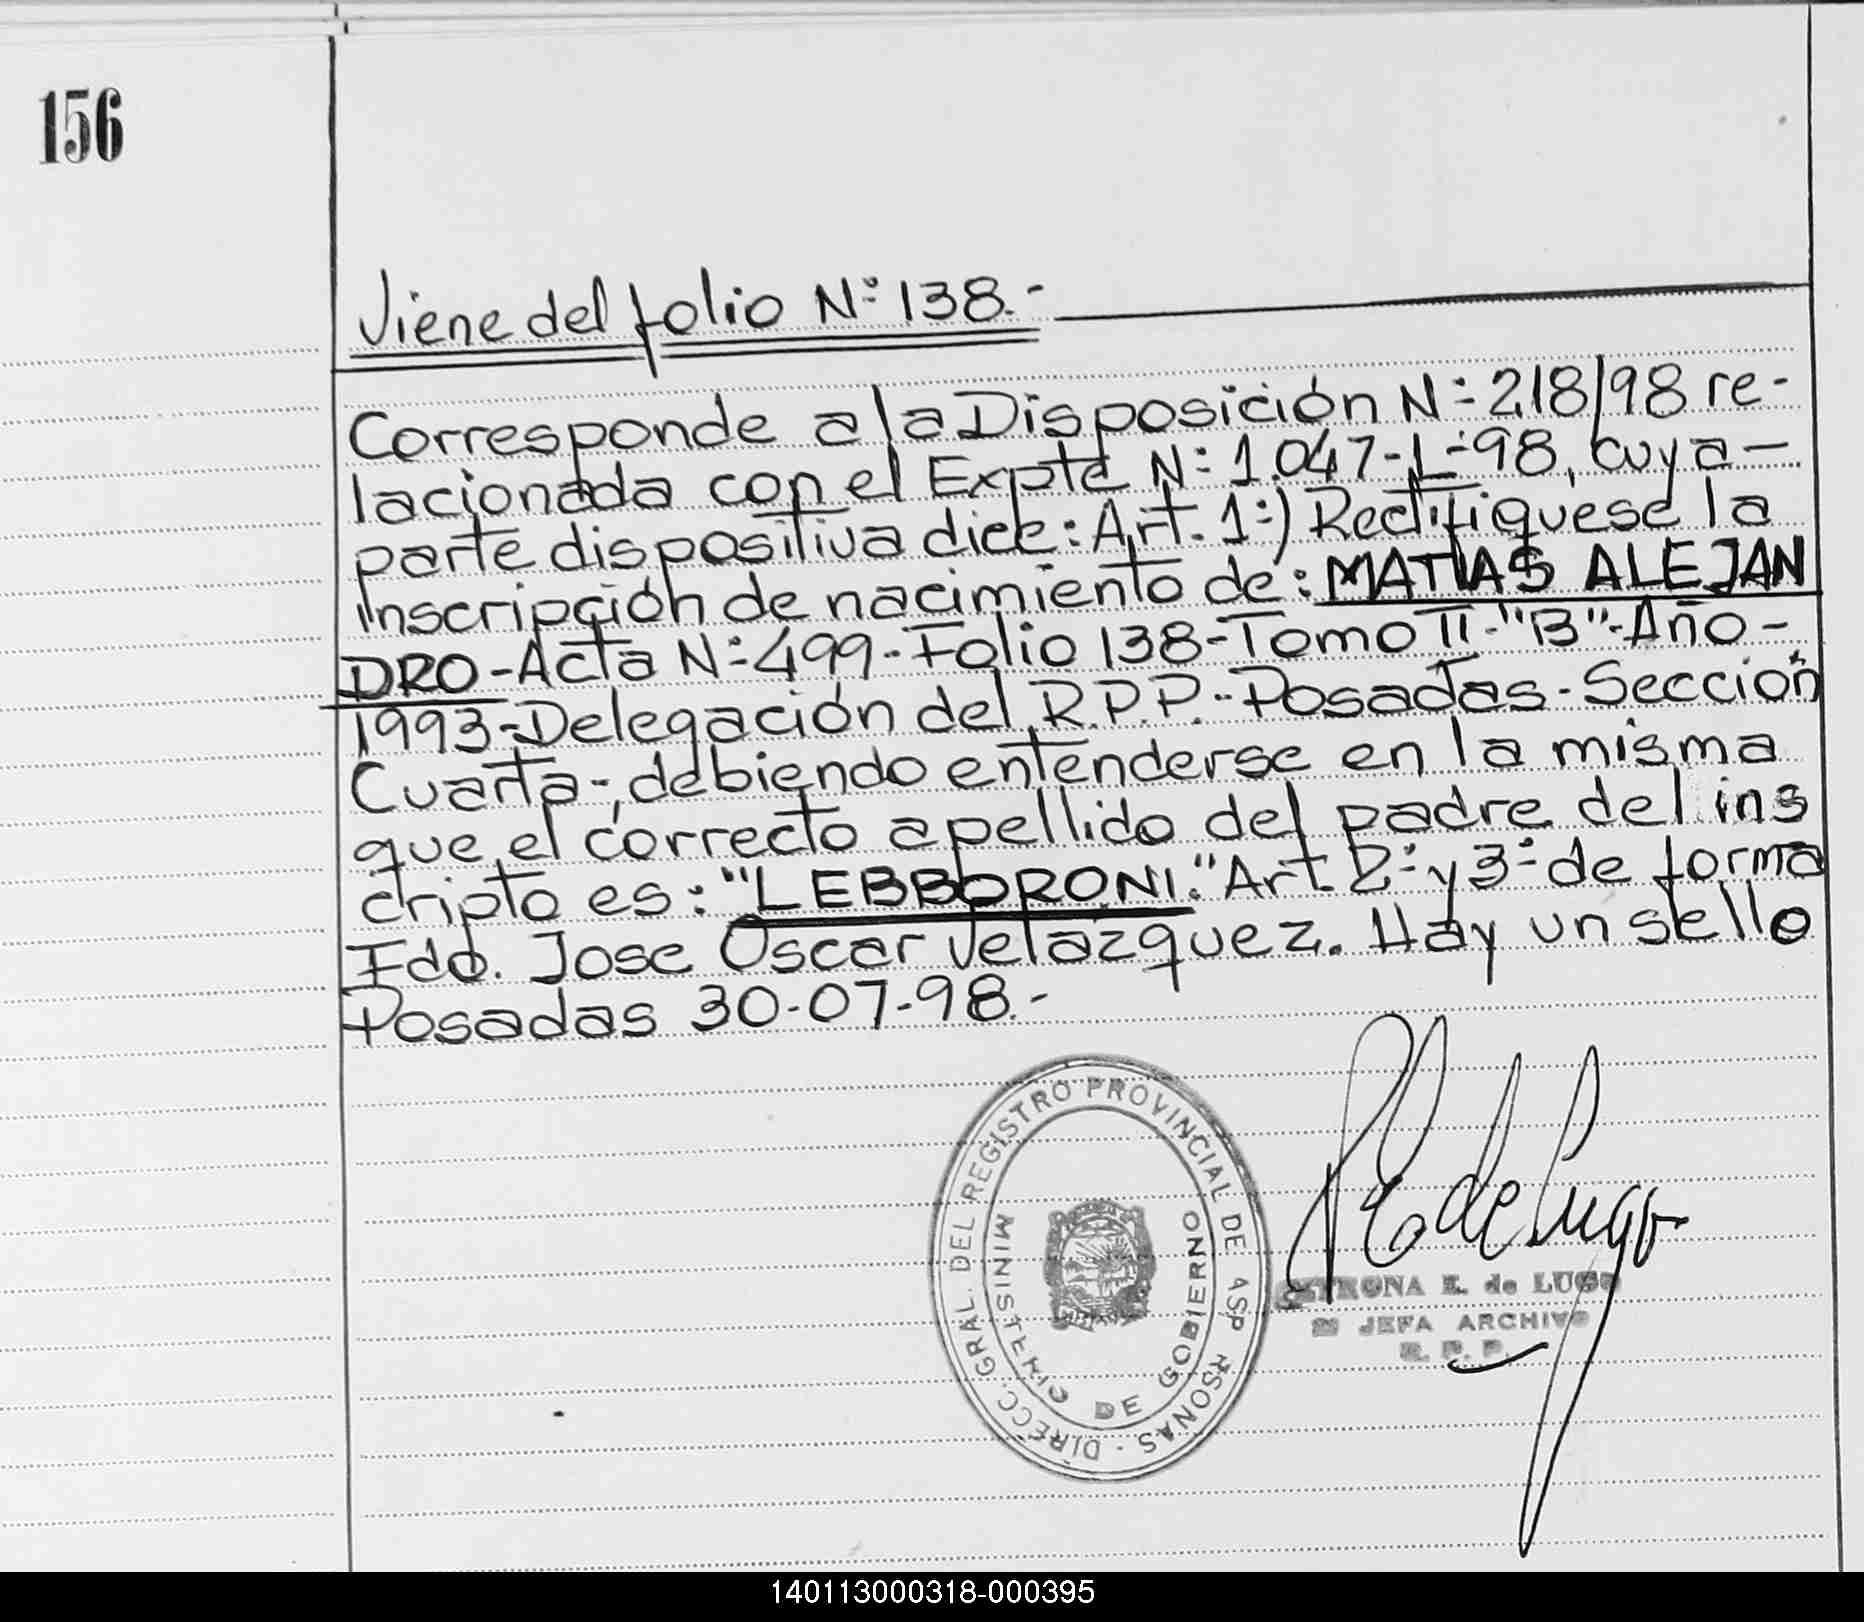 156
Viene del folio Nº 138.-
Corresponde a la Disposición Nº 218/98 re-
lacionada con el Expte Nº 1.047-L-98, cuya-
parte dispositiva dice: Art. 1º) Rectifiquese la
inscripción de nacimiento de: MATIAS ALEJAN
DRO-Acta Nº 499-Folio 138-Tomo II-"B"-Año-
1993-Delegación del R.P.P.-Posadas-Sección
Cuarta-, debiendo entenderse en la misma
que el correcto apellido del padre del ins
cripto es: "LEBBORONI." Art. 2º y 3º de forma
Fdo. Jose Oscar Velazquez. Hay un sello
Posadas 30-07-98.-
DIRECC. GRAL. DEL REGISTRO PROVINCIAL DE
MINISTERIO DE GOBIERNO
E. de LUGO
JEFA ARCHIVO
R. P. P.
140113000318-000395